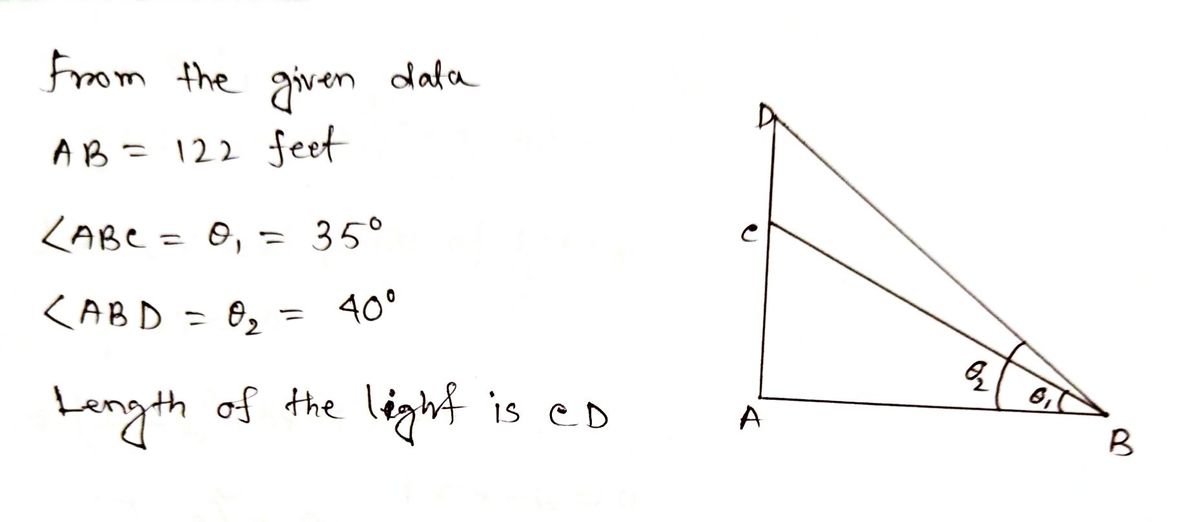 From the given data
AB = 122 feet
∠ABC = θ₁ = 35°
∠ABD = θ₂ = 40°
Length of the light is CD
D
C
θ₂
θ₁
A
B